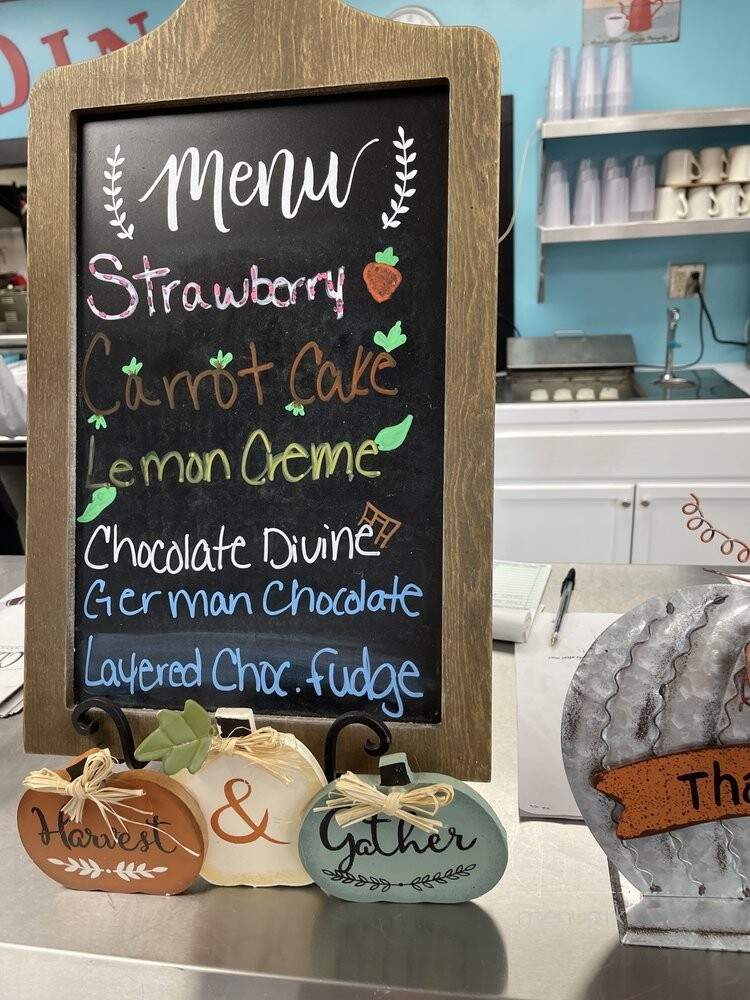 DIN
Menu
Strawberry
Carrot Cake
Lemon Creme
Chocolate Divine
German Chocolate
Layered Choc. Fudge
Harvest
&
Gather
Tha